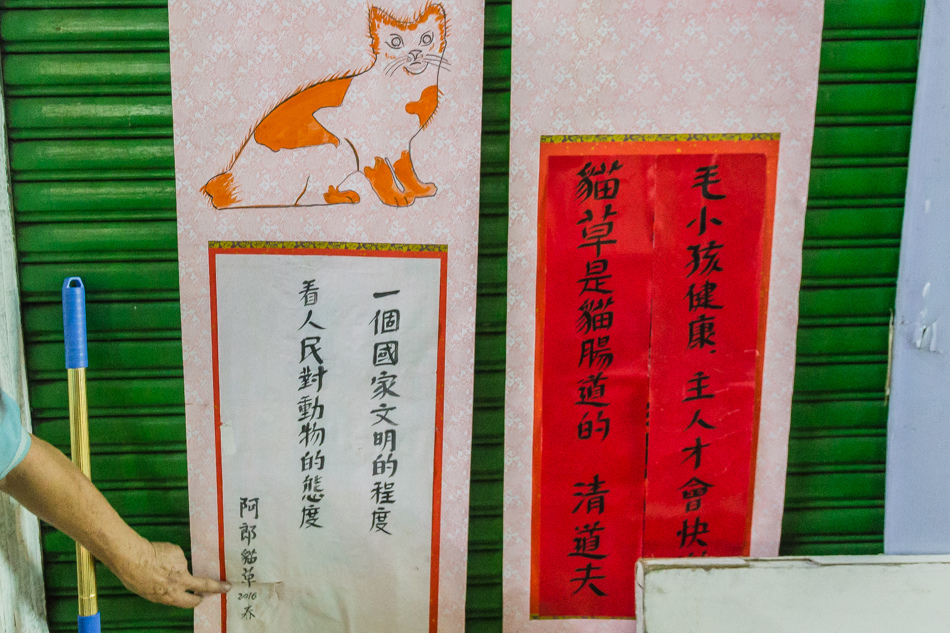 毛小孩健康，主人才會快
貓草是貓腸道的 清道夫
一個國家文明的程度
看人民對動物的態度
阿郎貓草
2016
春